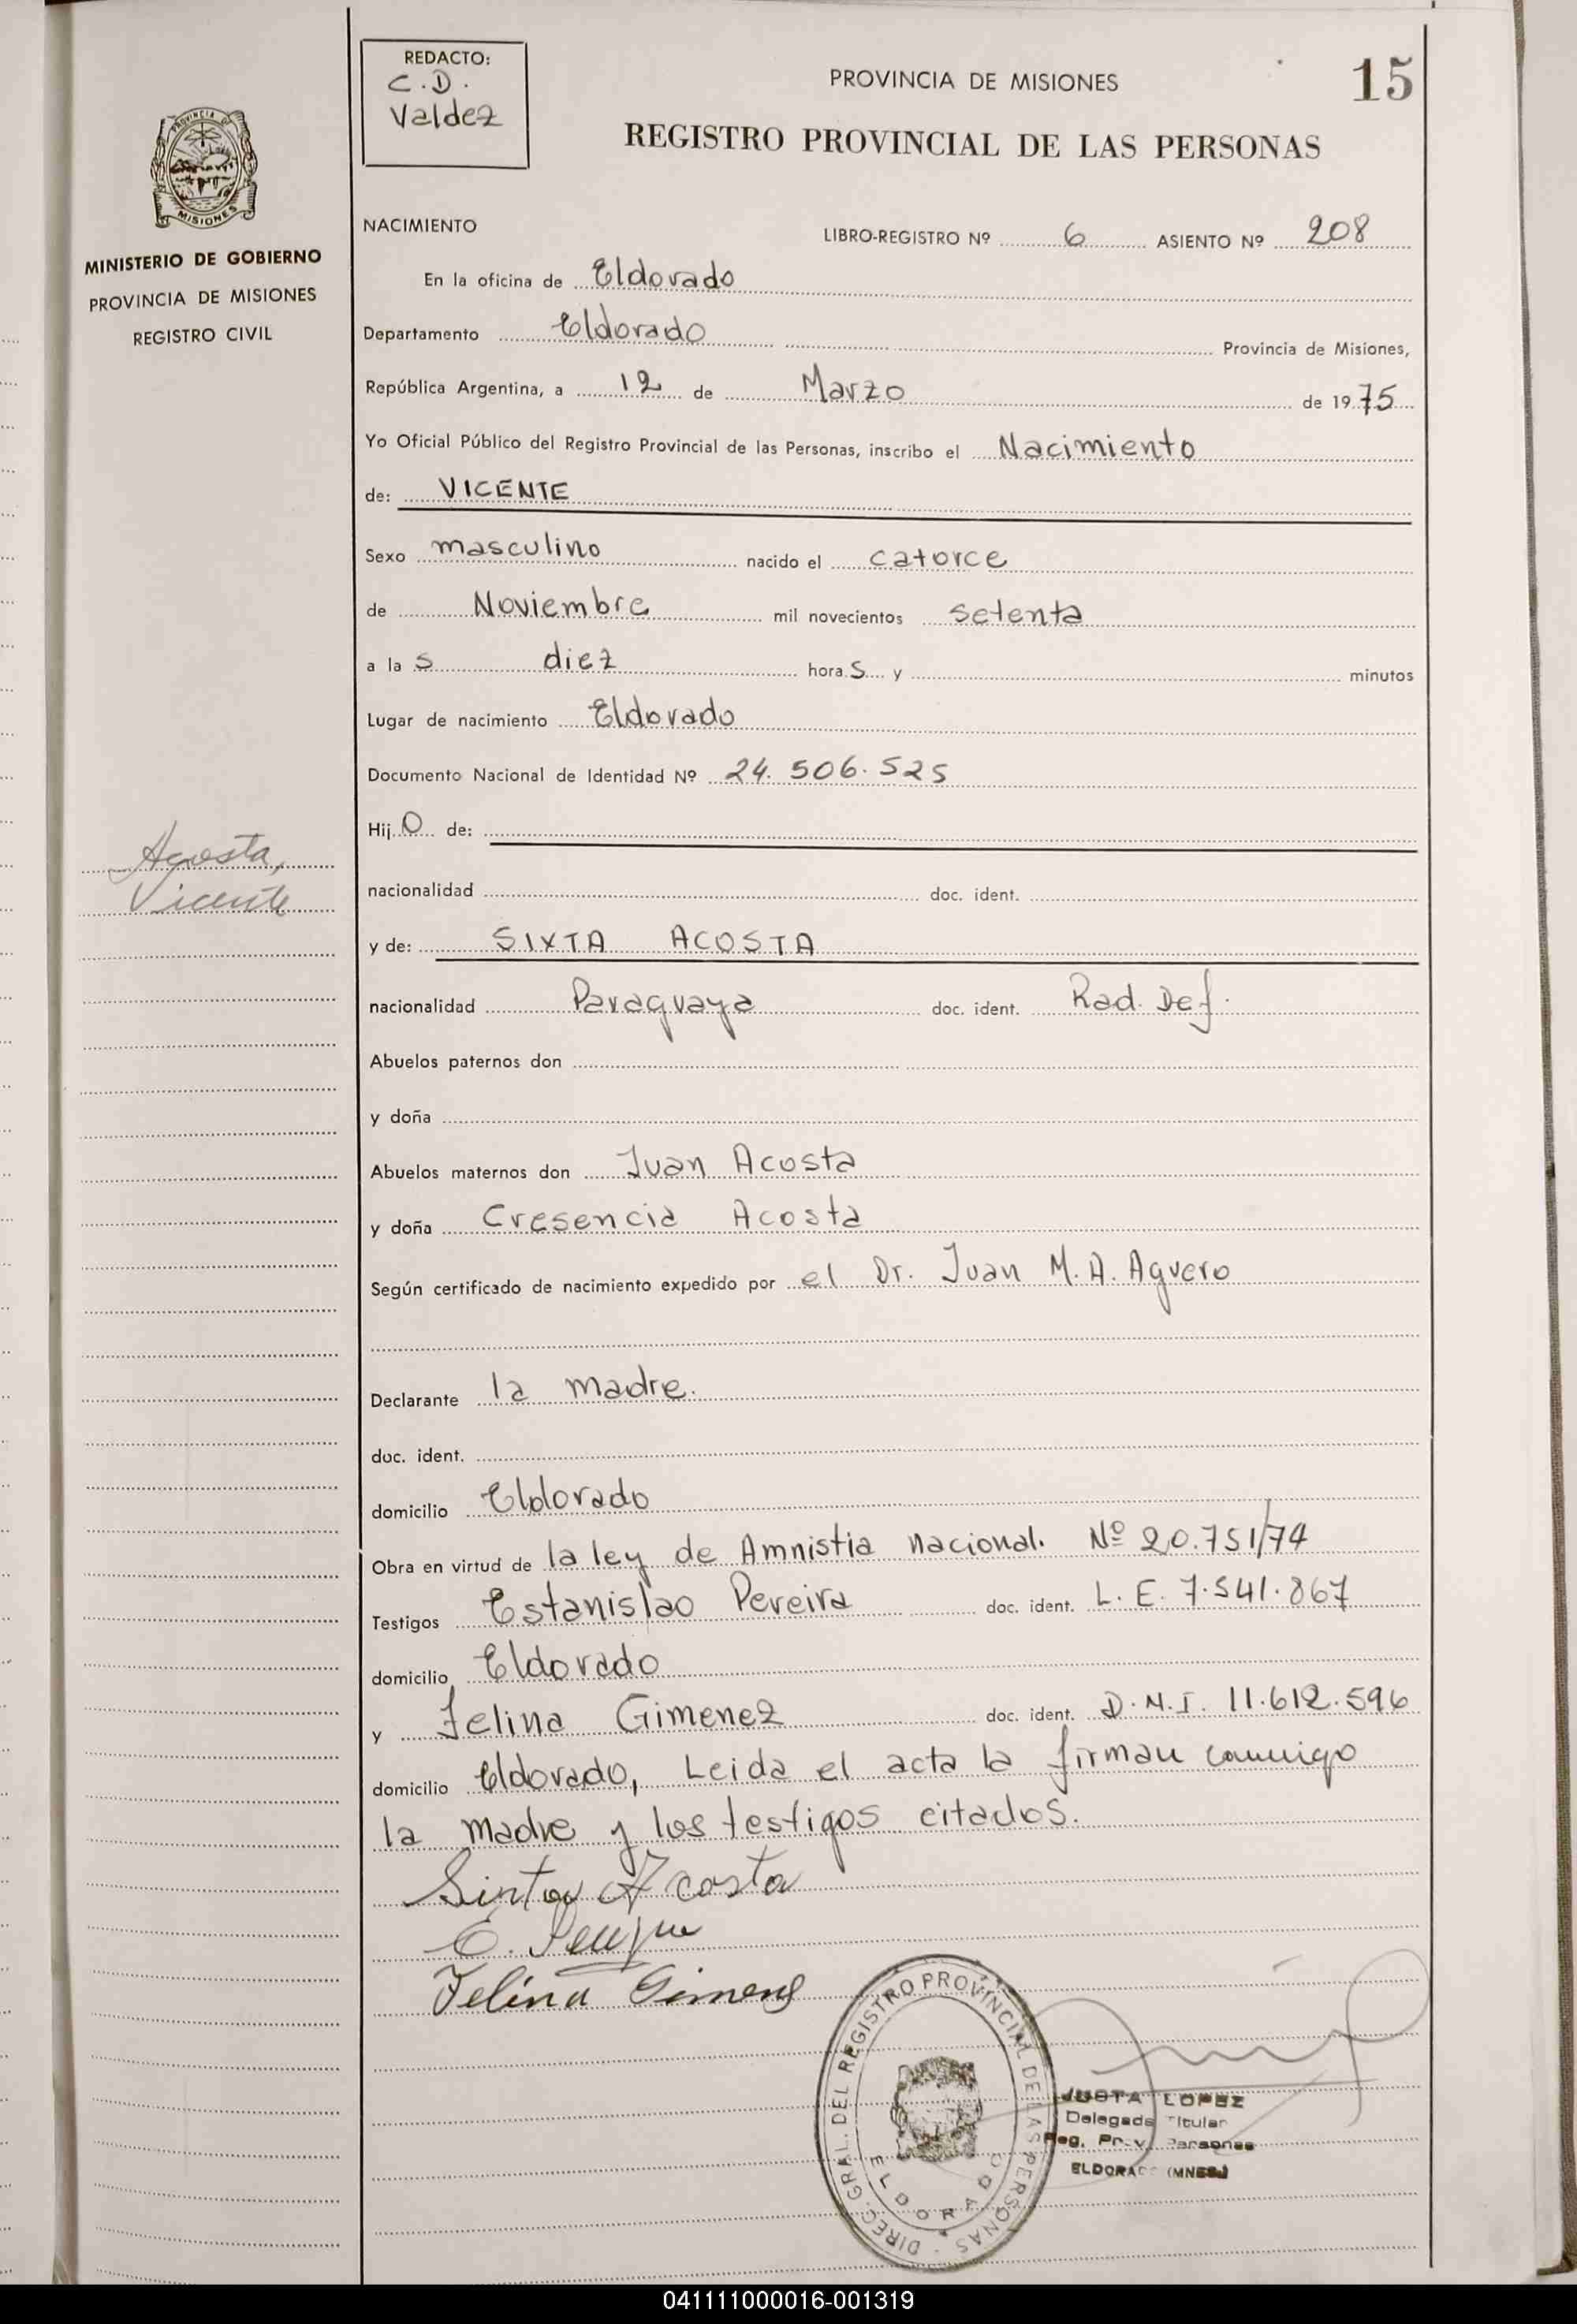 REDACTO:
C.D.
Valdez
PROVINCIA DE MISIONES
15
REGISTRO PROVINCIAL DE LAS PERSONAS
PROVINCIA DE
MISIONES
MINISTERIO DE GOBIERNO
PROVINCIA DE MISIONES
REGISTRO CIVIL
NACIMIENTO
LIBRO-REGISTRO Nº 6 ASIENTO Nº 208
En la oficina de Eldorado
Departamento Eldorado Provincia de Misiones,
República Argentina, a 12 de Marzo de 1975
Yo Oficial Público del Registro Provincial de las Personas, inscribo el Nacimiento
de: VICENTE
Sexo masculino nacido el catorce
de Noviembre mil novecientos setenta
a la s diez hora s y minutos
Lugar de nacimiento Eldorado
Documento Nacional de Identidad Nº 24.506.525
Hij o de:
Acosta,
Vicente
nacionalidad doc. ident.
y de: SIXTA ACOSTA
nacionalidad Paraguaya doc. ident. Rad. Def.
Abuelos paternos don
y doña
Abuelos maternos don Juan Acosta
y doña Cresencia Acosta
Según certificado de nacimiento expedido por el Dr. Juan M. A. Aguero
Declarante la madre.
doc. ident.
domicilio Eldorado
Obra en virtud de la ley de Amnistia nacional. Nº 20.751/74
Testigos Estanislao Pereira doc. ident. L. E. 7.541.867
domicilio Eldorado
y Felina Gimenez doc. ident. D.N.I. 11.612.596
domicilio Eldorado, Leida el acta la firman conmigo
la madre y los testigos citados.
Sixta Acosta
Felina Gimenez
DIREC. GRAL. DEL REGISTRO PROVINCIAL DE LAS PERSONAS
ELDORADO
JUSTA LOPEZ
Delegada Titular
Reg. Prov. Personas
ELDORADO (MNES.)
041111000016-001319